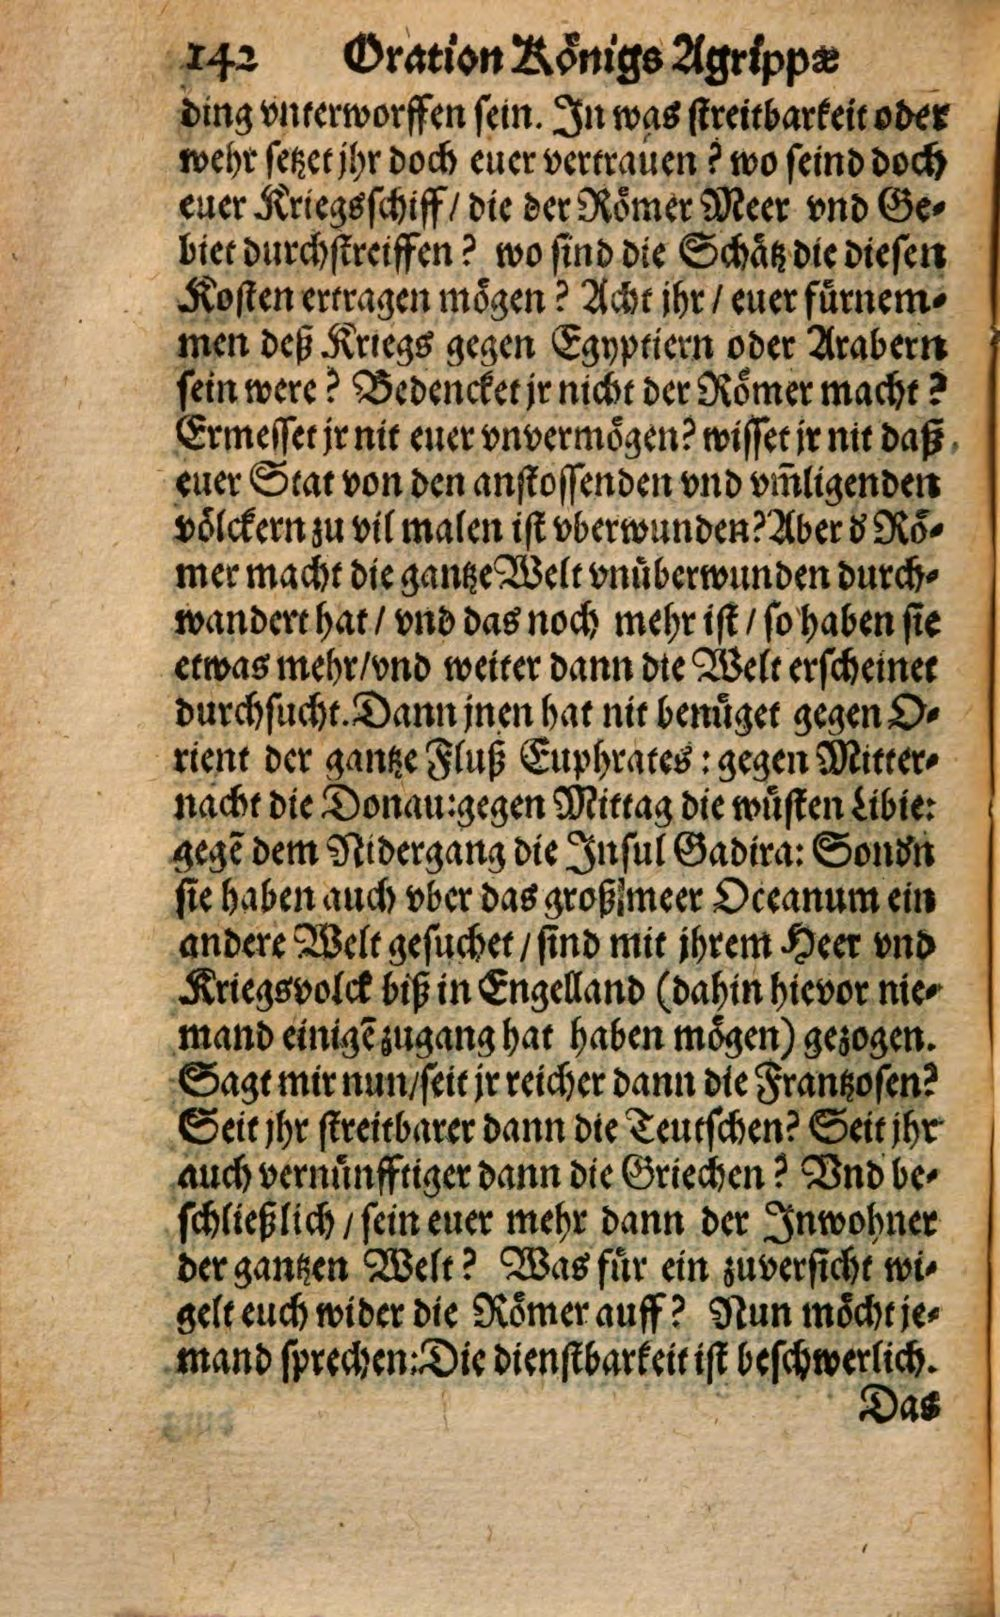 142 Oration Königs Agrippæ
ding vnterworffen sein. In was streitbarkeit oder
wehr setzet jhr doch euer vertrauen? wo seind doch
euer Kriegsschiff / die der Römer Meer vnd Ge-
biet durchstreiffen? wo sind die Schätz die diesen
Kosten ertragen mögen? Acht jhr / euer fürnem-
men deß Kriegs gegen Egyptiern oder Arabern
sein were? Bedencket jr nicht der Römer macht?
Ermesset jr nit euer vnvermögen? wisset jr nit daß
euer Stat von den anstossenden vnd vm̄ligenden
völckern zu vil malen ist vberwunden? Aber d' Rö-
mer macht die gantze Welt vnüberwunden durch-
wandert hat / vnd das noch mehr ist / so haben sie
etwas mehr / vnd weiter dann die Welt erscheinet
durchsucht. Dann jnen hat nit benüget gegen O-
rient der gantze Fluß Euphrates: gegen Mitter-
nacht die Donau: gegen Mittag die wüsten Libie:
gegē dem Nidergang die Insul Gadira: Sond'n
sie haben auch vber das groß meer Oceanum ein
andere Welt gesuchet / sind mit jhrem Heer vnd
Kriegsvolck biß in Engelland (dahin hievor nie-
mand einigē zugang hat haben mögen) gezogen.
Sagt mir nun / seit jr reicher dann die Frantzosen?
Seit jhr streitbarer dann die Teutschen? Seit jhr
auch vernünfftiger dann die Griechen? Vnd be-
schließlich / sein euer mehr dann der Inwohner
der gantzen Welt? Was für ein zuversicht wi-
gelt euch wider die Römer auff? Nun möcht je-
mand sprechen: Die dienstbarkeit ist beschwerlich.
Das